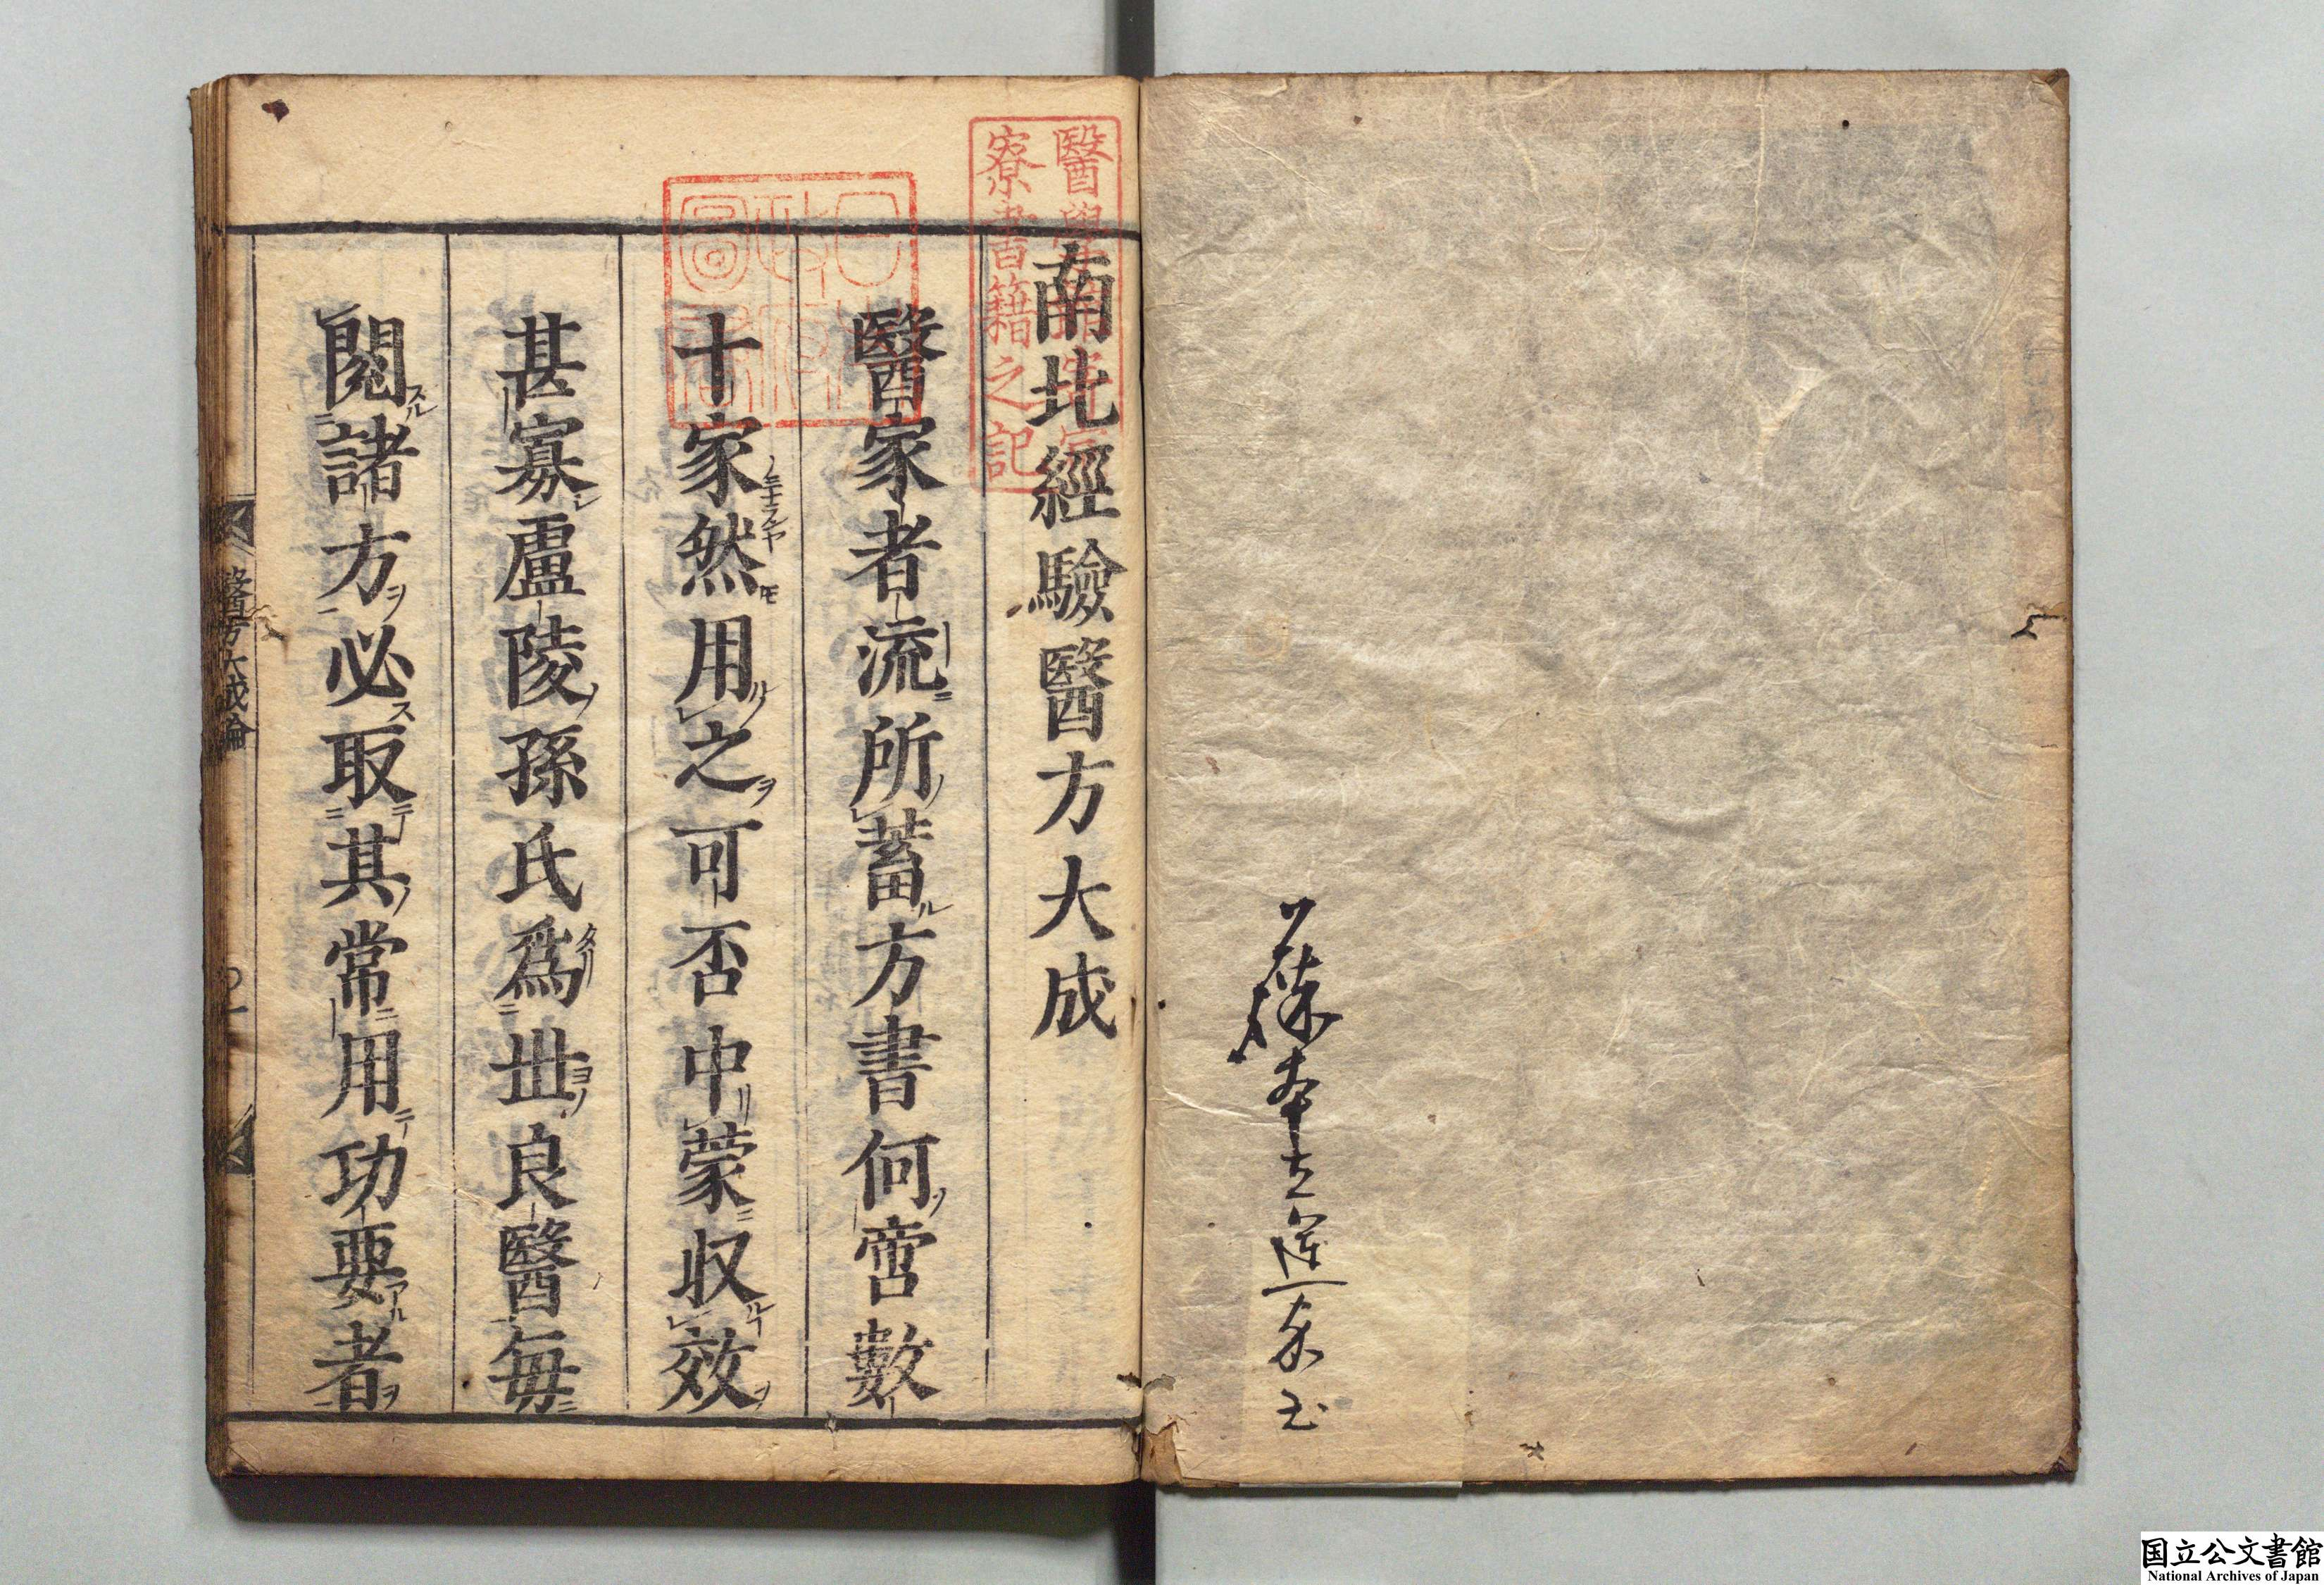 南北經驗醫方大成
醫家者流所蓄方書何啻數
十家然用之可否中蒙收效
甚寡盧陵孫氏爲丗良醫毎
閱諸方必取其常用功要者
醫方大成論
醫學
寮書籍之記
日
政府
圖書
国立公文書館
National Archives of Japan